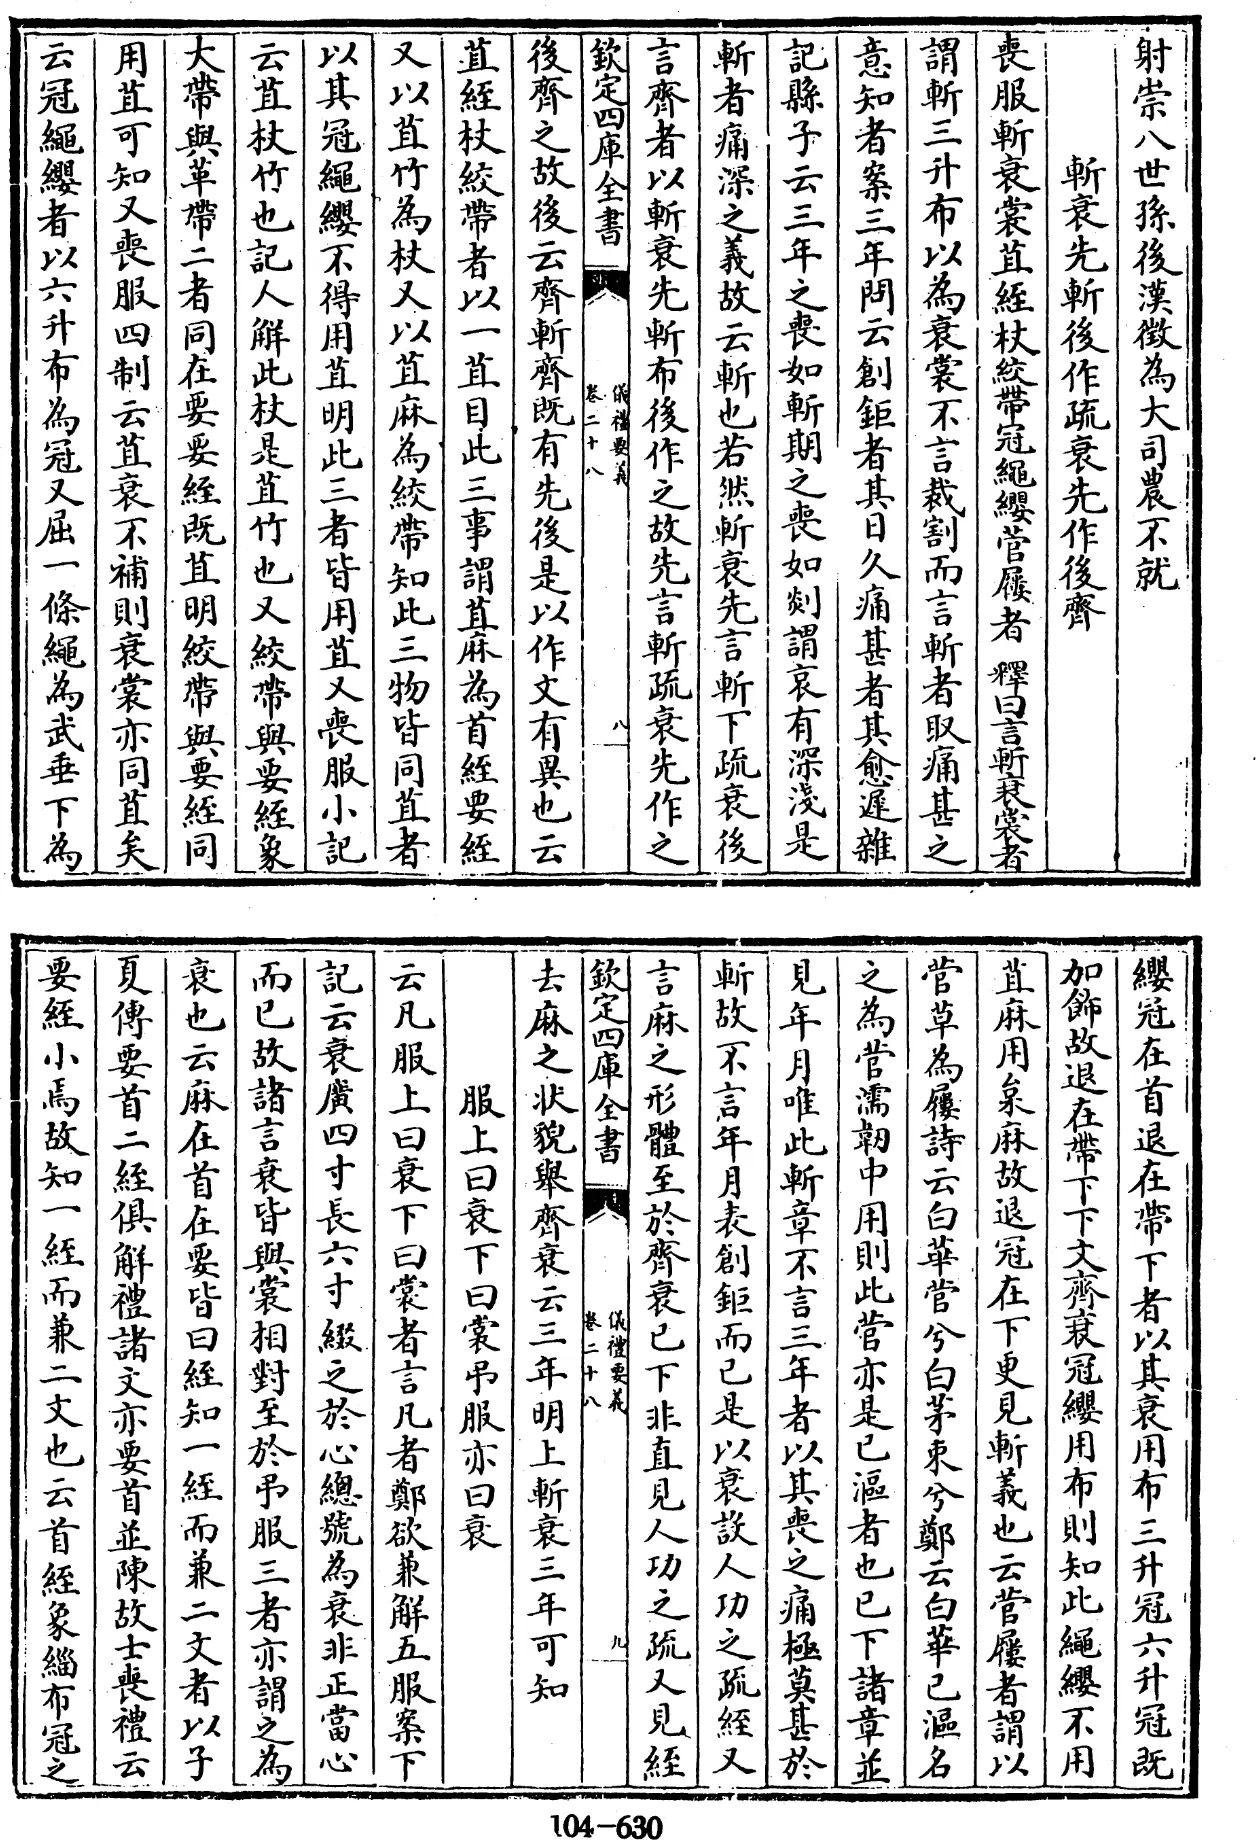 射崇八世孫後漢徵為大司農不就
斬衰先斬後作疏衰先作後齊
喪服斬衰裳苴絰杖絞帶冠繩纓菅屨者 釋曰言斬衰裳者
謂斬三升布以為衰裳不言裁割而言斬者取痛甚之
意知者案三年問云創鉅者其日久痛甚者其愈遲雜
記縣子云三年之喪如斬期之喪如剡謂哀有深淺是
斬者痛深之義故云斬也若然斬衰先言斬下疏衰後
言齊者以斬衰先斬布後作之故先言斬疏衰先作之
欽定四庫全書
儀禮要義
卷二十八
八
後齊之故後云齊斬齊既有先後是以作文有異也云
苴絰杖絞帶者以一苴目此三事謂苴麻為首絰要絰
又以苴竹為杖又以苴麻為絞帶知此三物皆同苴者
以其冠繩纓不得用苴明此三者皆用苴又喪服小記
云苴杖竹也記人解此杖是苴竹也又絞帶與要絰象
大帶與革帶二者同在要要絰既苴明絞帶與要絰同
用苴可知又喪服四制云苴衰不補則衰裳亦同苴矣
云冠繩纓者以六升布為冠又屈一條繩為武垂下為
纓冠在首退在帶下者以其衰用布三升冠六升冠既
加飾故退在帶下下文齊衰冠纓用布則知此繩纓不用
苴麻用枲麻故退冠在下更見斬義也云菅屨者謂以
菅草為屨詩云白華菅兮白茅束兮鄭云白華已漚名
之為菅濡韌中用則此菅亦是已漚者也已下諸章並
見年月唯此斬章不言三年者以其喪之痛極莫甚於
斬故不言年月表創鉅而已是以衰設人功之疏絰又
言麻之形體至於齊衰已下非直見人功之疏又見絰
欽定四庫全書
儀禮要義
卷二十八
九
去麻之狀貌舉齊衰云三年明上斬衰三年可知
服上曰衰下曰裳弔服亦曰衰
云凡服上曰衰下曰裳者言凡者鄭欲兼解五服案下
記云衰廣四寸長六寸綴之於心總號為衰非正當心
而已故諸言衰皆與裳相對至於弔服三者亦謂之為
衰也云麻在首在要皆曰絰知一絰而兼二文者以子
夏傳要首二絰俱解禮諸文亦要首並陳故士喪禮云
要絰小焉故知一絰而兼二文也云首絰象緇布冠之
104-630